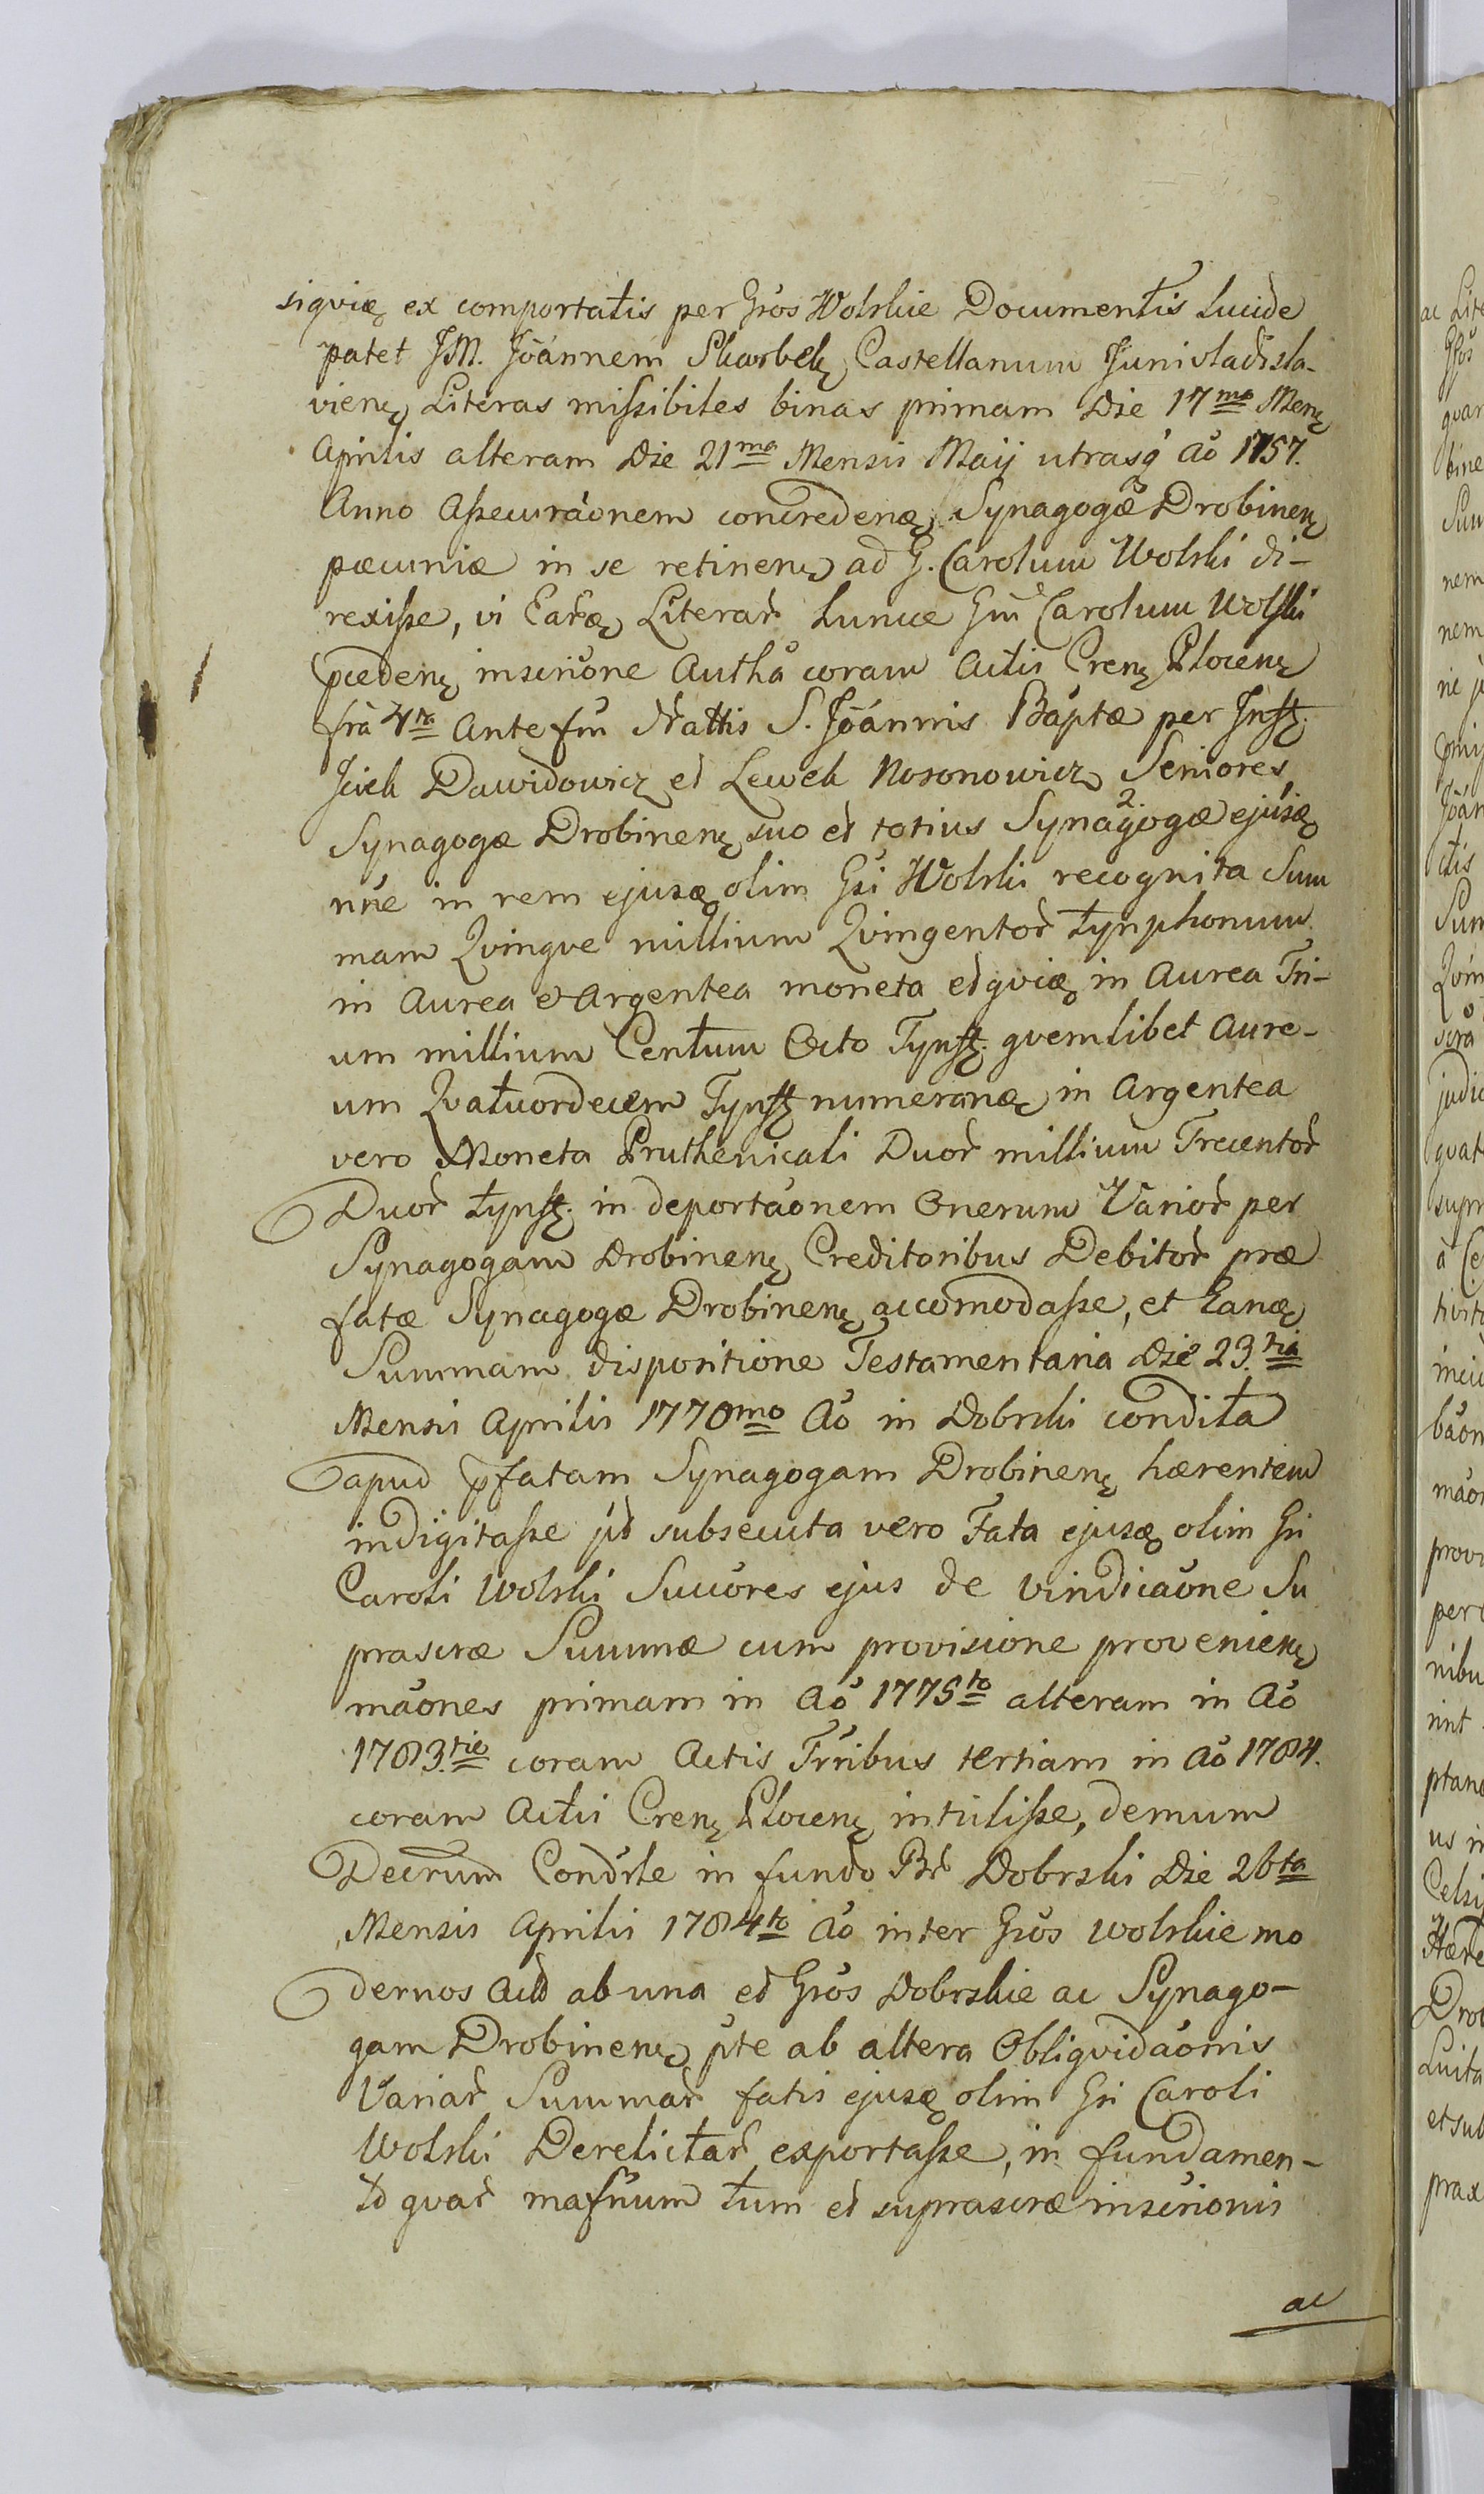 siqviæ ex comportatis per Gr̃os Wolskie Documentis Lucide
patet JM. Jõannem Skarbek Castellanum Junivladisla-
vien̨ Literas missibiles binas primam Die 17ma Men̨
Aprilis alteram Die 21ma Mensis Maij utrasq́ Aõ 1757.
Anno Assecurãonem concreden̨æ Synagogæ Drobinen̨
pæcuniæ in se retinen̨ ad G. Carolum Wolski di-
rexisse, vi Earæ̨ Literar̃ hunce Gm̃ Carolum Wolski
præceden̨ inscriõne Authã coram Actis Cren̨ Plocen̨
frã 4ta Ante fm̃ Nattis S. Jõannis Baptæ per Inf̨
Jcek Dawidowicz et Lewek Nosonowicz Seniores
Synagogæ Drobinen̨ suo et totius Synagogæ ejusæ̨
nñe in rem ejusæ̨ olim Gsi Wolski recognita Sum
mam Qvinqve millium Qvingentor̃ tynphonum
in Aurea et Argentea moneta et qviæ̨ in Aurea Tri-
um millium Centum Octo Tynf̨. qvemlibet Aure-
um Qvatuordecem Tynf̨ numeran̨æ in Argentea
vero Moneta Pruthenicali Duor̃ millium Trecentor̃
Duor̃ tynf̨. in deportãonem Onerum Varior̃ per
Synagogam Drobinen̨ Creditoribus Debitor̃ præ
fatæ Synagogæ Drobinen̨ accomodasse, et Eanæ̨
Summam dispositione Testamentaria Die 23.tia
Mensis Aprilis 1770mo Aõ in Dobrski condita
apud p̃fatam Synagogam Drobinen̨ hærentem
indigitasse p̃d subsecuta vero Fata ejusæ̨ olim Gsi
Caroli Wolski Succõres ejus de vindicãone Su
prascræ Summæ cum provisione provenien̨
mãones primam in Aõ 1775to alteram in Aõ
1783.tio coram Actis Tr̃ribus tertiam in Aõ 1784.
coram Actis Cren̨ Plocen̨ intulisse, demum
Decrum Condrle in fundo Br̃ Dobrski Die 26ta
Mensis Aprilis 1784to Aõ inter Gr̃os Wolskie mo
dernos Acto ab una et Gr̃os Dobrskie ac Synago-
gam Drobinen̨ p̃te ab altera Obliqvidãonis
Variar̃ Summar̃ fatis ejusæ̨ olim Gsi Caroli
Wolski Derelictar̃ exportasse, in fundamen-
to qvar̃ mafñum tum et suprascræ inscrionis
ac